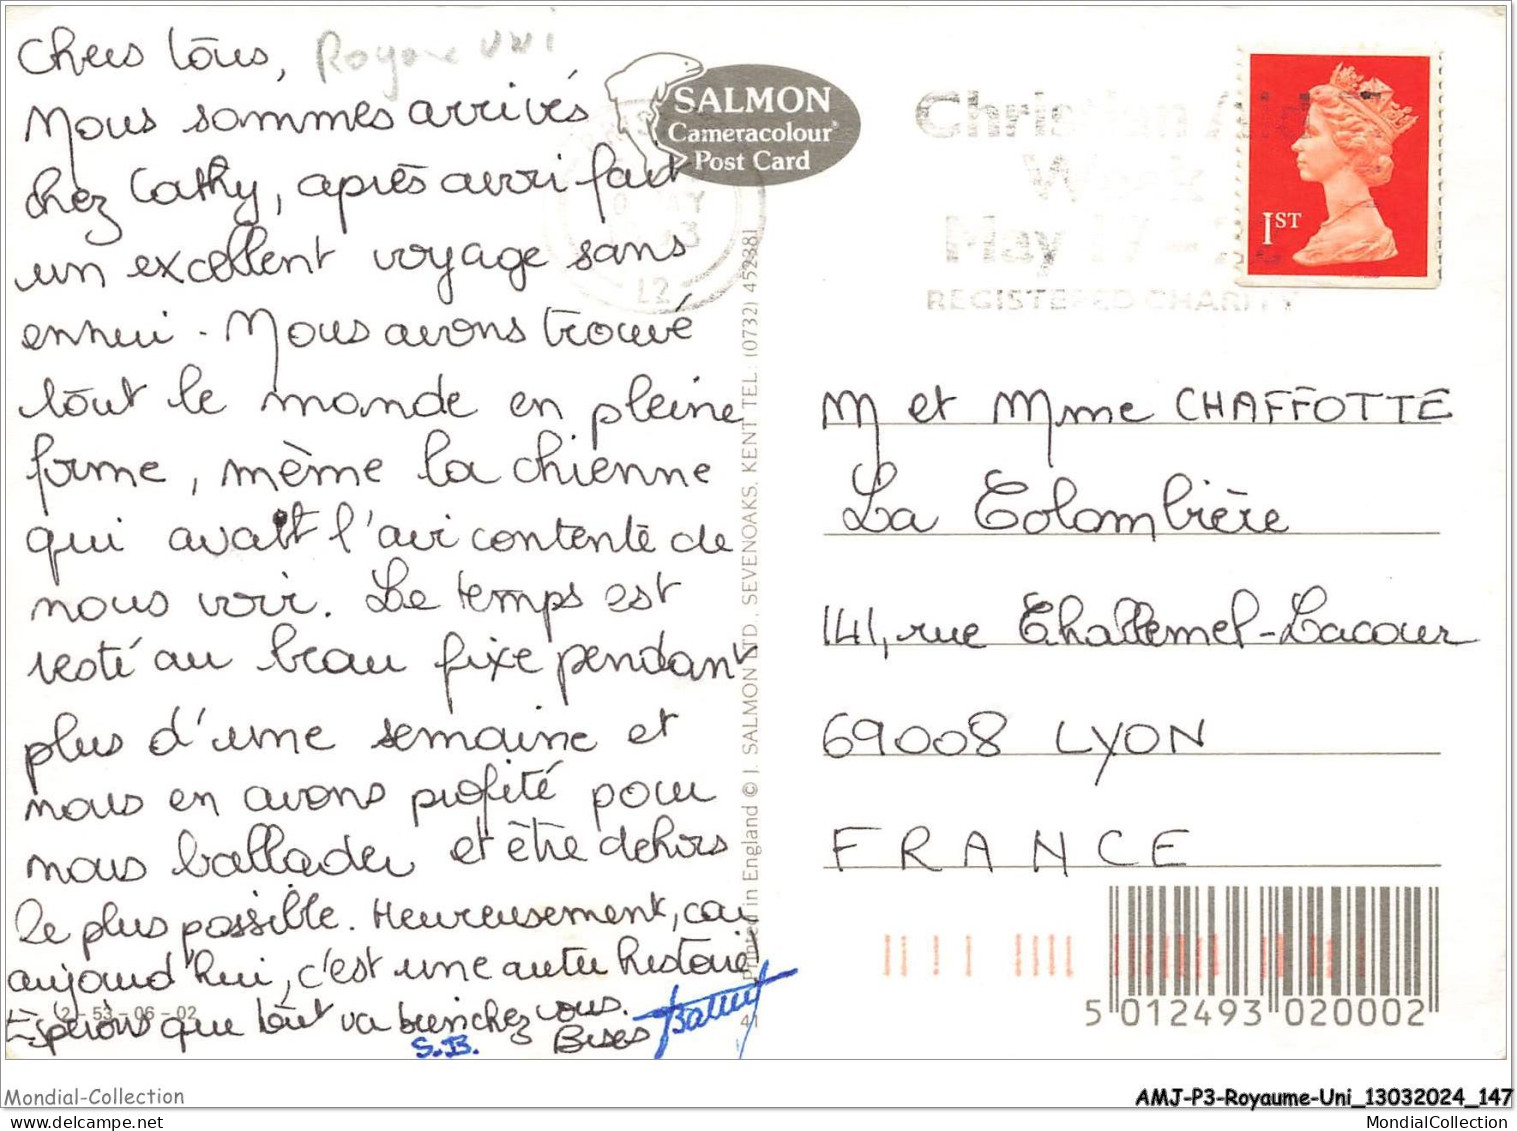 Chers tous,
Royaume Uni
Nous sommes arrivés
chez Cathy, après avoir fait
un excellent voyage sans
ennui. Nous avons trouvé
tout le monde en pleine
forme, même la chienne
qui avait l'air contente de
nous voir. Le temps est
resté au beau fixe pendant
plus d'une semaine et
nous en avons profité pour
nous ballader et être dehors
le plus possible. Heureusement, car
aujourd'hui, c'est une autre histoire!
Espérons que tout va bien chez vous.
Bises
S.B.
2-53-06-02
SALMON
Cameracolour
Post Card
MAY
12
Christian Aid
Week
May 17 - 
REGISTERED CHARITY
1ST
Printed in England © J. SALMON LTD., SEVENOAKS, KENT TEL: (0732) 452381
M et Mme CHAFFOTTE
La Colombière
141, rue Challemel-Lacour
69008 LYON
FRANCE
5 012493 020002
Mondial-Collection
AMJ-P3-Royaume-Uni_13032024_147
MondialCollection